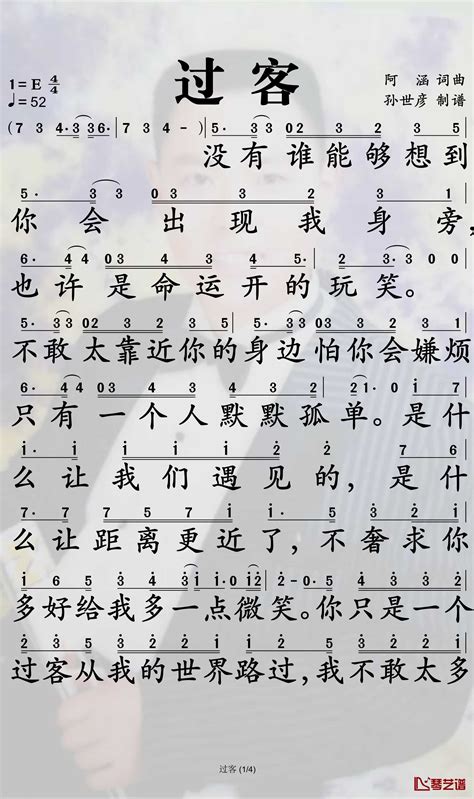 过客
1=E 4/4
♩=52
阿 涵 词曲
孙世彦 制谱
(7 3 4·3 36· | 7· 3 7 3 4 - ) | 5· 3 3 02 3 2 3 5
没有谁能够想到
5· 3 3 03 3 2 3
你会出现我身旁,
6· 4 4 03 4 3 2 3·2 3 00
也许是命运开的玩笑。
5· 3 3 02 3 2 3 5· 3 3 02 3 2 3 1
不敢太靠近你的身边怕你会嫌烦
6· 4 4 03 4 3 4 3 2 21· 0 1 7
只有一个人默默孤单。是什
i· i i i i 2 2 7 6
么让我们遇见的,是什
7· 7 7 5 7 i i 3 2 i
么让距离更近了,不奢求你
i 6 5 3 4 3 i i·0 i2 2-05 3 2 i
多好给我多一点微笑。你只是一个
5 3 2 i 2 3 2 i 2 5 5 3 2 i 2 i
过客从我的世界路过,我不敢太多
过客 (1/4)
琴艺谱